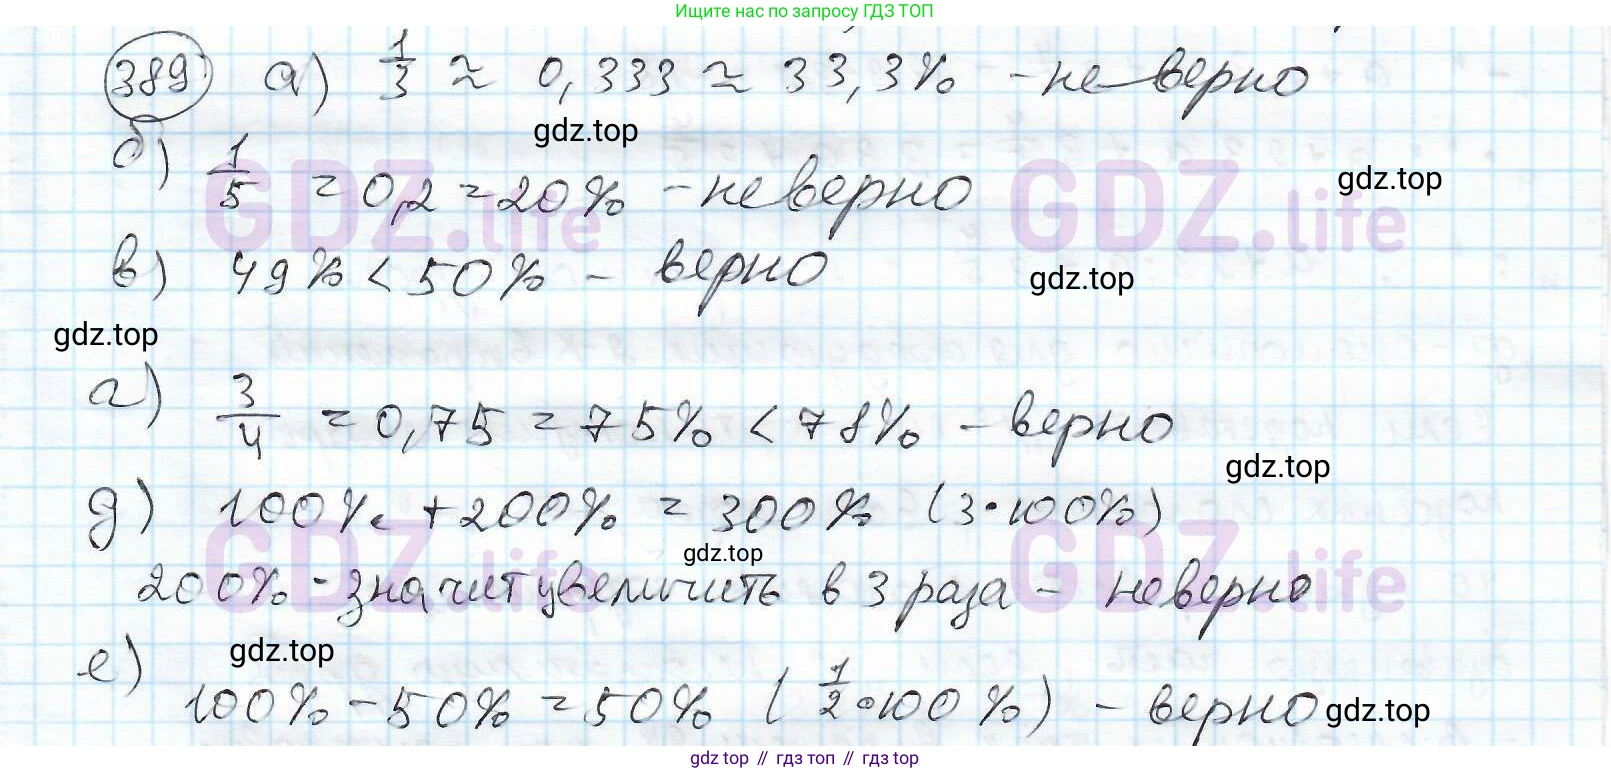 Ищите нас по запросу ГДЗ ТОП
389 а) 1/3 ≈ 0,333 ≈ 33,3% - неверно
gdz.top
б) 1/5 = 0,2 = 20% - неверно
gdz.top
GDZ.life GDZ.life
в) 49% < 50% - верно
gdz.top
gdz.top
г) 3/4 = 0,75 = 75% < 78% - верно
gdz.top
д) 100% + 200% = 300% (3·100%)
gdz.top
GDZ.life GDZ.life
200% - значит увеличить в 3 раза - неверно
gdz.top
е) 100% - 50% = 50% (1/2·100%) - верно
gdz.top
gdz top // гдз топ // гдз top // gdz топ